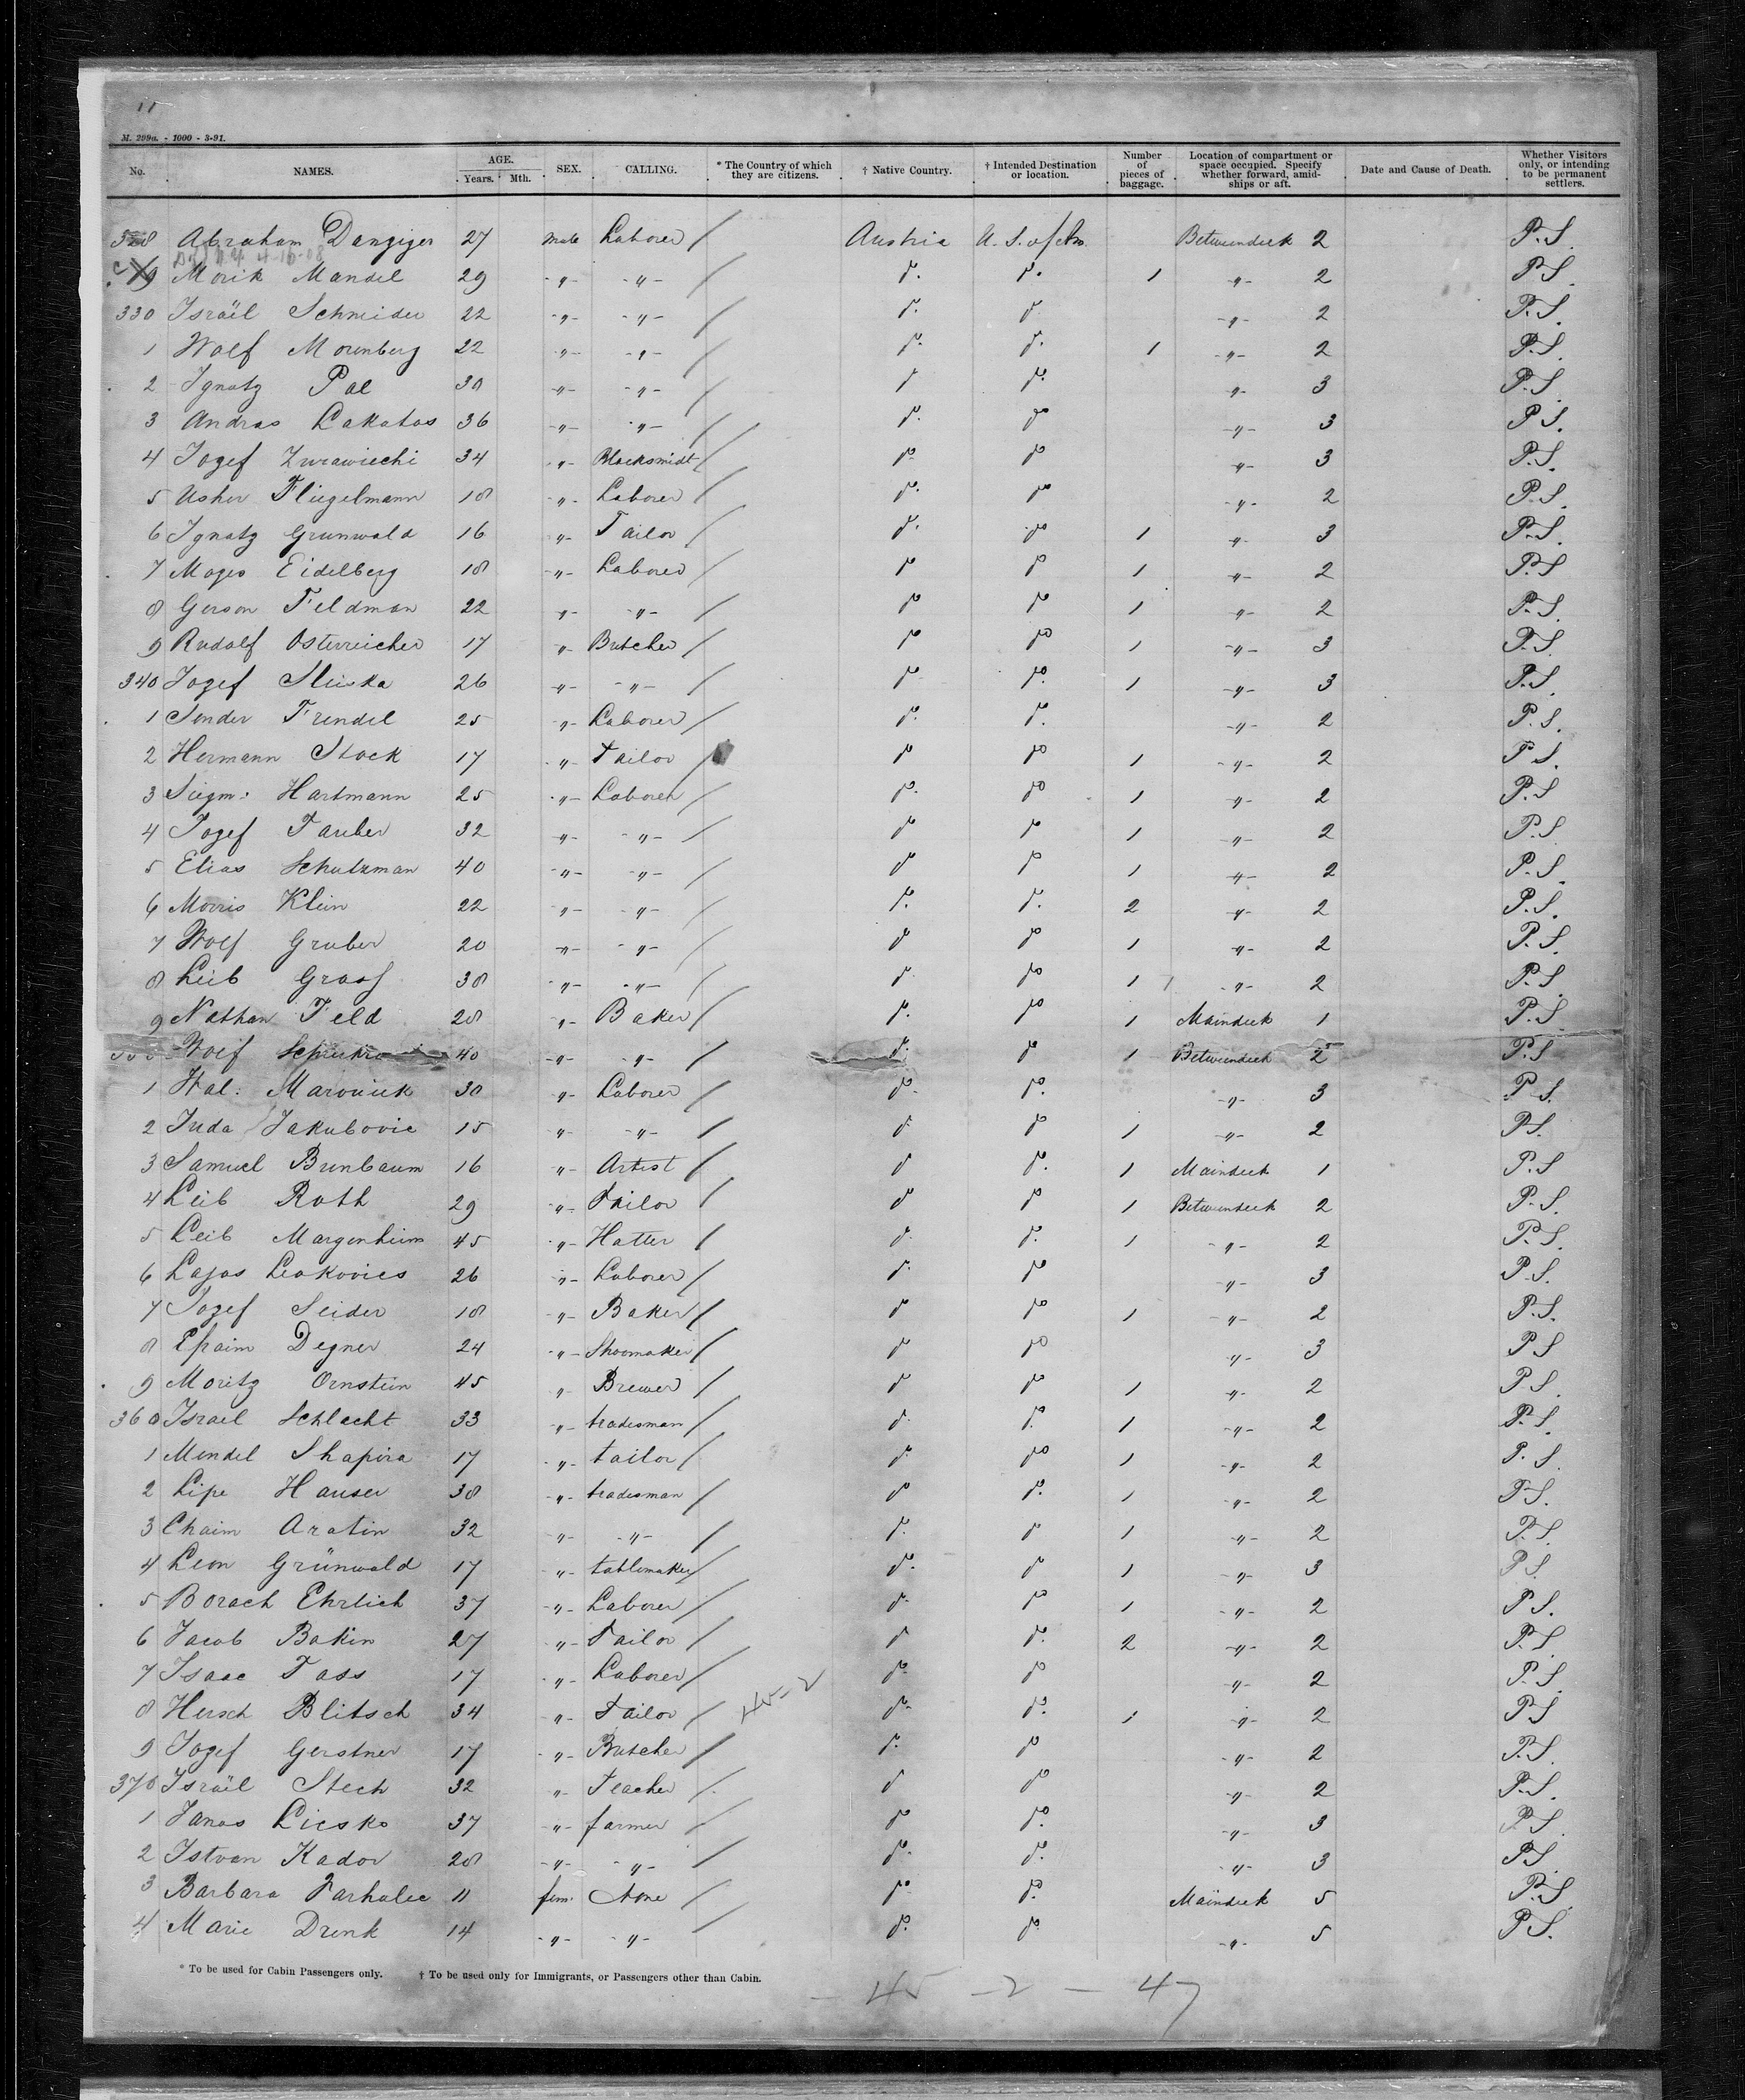 11
M. 299a. - 1000 - 3-91.
No. NAMES. AGE. Years. Mth. SEX. CALLING. * The Country of which they are citizens. † Native Country. † Intended Destination or location. Number of pieces of baggage. Location of compartment or space occupied. Specify whether forward, amidships or aft. Date and Cause of Death. Whether Visitors only, or intending to be permanent settlers.
328 Abraham Danziger 27 Male Laborer / Austria U. S. of Am. Betweendeck 2 P.S.
4-16-08
9 Morik Mandel 29 -"- -"- / do. do. 1 -"- 2 P.S.
330 Israïl Schneider 22 -"- -"- / do. do -"- 2 P.S.
1 Wolf Morenberg 22 -"- -"- / do. do. 1 -"- 2 P.S.
2 Ignatz Pal 30 -"- -"- / do do. -"- 3 P.S.
3 Andras Lakatos 36 -"- -"- / do. do -"- 3 P.S.
4 Jozef Zurawiechi 34 -"- Blacksmidt / do do -"- 3 P.S.
5 Usher Fliegelmann 18 -"- Laborer / do. do -"- 2 P.S.
6 Ignatz Grunwald 16 -"- Tailor / do. do 1 -"- 3 P.S.
7 Mozes Eidelberg 18 -"- Laborer / do do 1 -"- 2 P.S
8 Gerson Feldman 22 -"- -"- / do do 1 -"- 2 P.S.
9 Rudolf Osterreicher 17 -"- Butcher / do do 1 -"- 3 P.S.
340 Jozef 26 -"- -"- / do do. 1 -"- 3 P.S.
1 Sender Frendel 25 -"- Laborer / do. do. -"- 2 P.S.
2 Hermann Stock 17 -"- Tailor / do do 1 -"- 2 P.S.
3 Siegm: Hartmann 25 -"- Laborer / do. do 1 -"- 2 P.S
4 Jozef Tauber 32 -"- -"- / do do 1 -"- 2 P.S.
5 Elias Schutzman 40 -"- -"- / do do 1 -"- 2 P.S.
6 Morris Klein 22 -"- -"- / do. do. 2 -"- 2 P.S.
7 Wolf Gruber 20 -"- -"- / do do 1 -"- 2 P.S.
8 Leib Graaf 38 -"- -"- / do do 1 -"- 2 P.S.
9 Nathan Feld 28 -"- Baker / do. do 1 Maindeck 1 P.S.
Wolf 40 -"- -"- / do. do 1 Betweendeck 2 P.S
1 Wal: 30 -"- Laborer / do. do. -"- 3 P.S.
2 Juda Jakubovic 15 -"- -"- / do do 1 -"- 2 P.S.
3 Samuel Brunbaum 16 -"- Artist / do do. 1 Maindeck 1 P.S
4 Leib Roth 29 -"- Tailor / do do 1 Betweendeck 2 P.S.
5 Leib Margenheim 45 -"- Hatter / do. do. 1 -"- 2 P.S.
6 Lajos Leakovics 26 -"- Laborer / do. do -"- 3 P.S.
7 Jozef Seider 18 -"- Baker / do do 1 -"- 2 P.S.
8 Efraim Degner 24 -"- Shoomaker / do do -"- 3 P.S
9 Moritz Ornstein 45 -"- Brewer / do do 1 -"- 2 P.S.
360 Israel Schlacht 33 -"- tradesman / do. do. 1 -"- 2 P.S.
1 Mendel Shapira 17 -"- tailor / do. do 1 -"- 2 P.S.
2 Lipe Hauser 38 -"- tradesman / do do. 1 -"- 2 P.S.
3 Chaim Aratin 32 -"- -"- / do. do 1 -"- 2 P.S.
4 Leon Grünwald 17 -"- tablemaker / do. do 1 -"- 3 P.S.
5 Borach Ehrlich 37 -"- Laborer / do. do 1 -"- 2 P.S.
6 Jacob Bakin 27 -"- Tailor / do do. 2 -"- 2 P.S
7 Isaac Tass 17 -"- Laborer / do. do -"- 2 P.S.
8 Hersch Blitsch 34 -"- Tailor / 45-2 do. do. 1 -"- 2 P.S
9 Jozef Gerstner 17 -"- Butcher / do. do -"- 2 P.S.
370 Israïl Stech 32 -"- Teacher / do do -"- 2 P.S.
1 Janos Licsko 37 -"- farmer / do do. -"- 3 P.S.
2 Istvan Kador 28 -"- -"- / do. do. -"- 3 P.S.
3 Barbara Farkalec 11 fem. None / do do. Maindeck 5 P.S.
4 Marie Drenk 14 -"- -"- / do. do. -"- 5 P.S.
* To be used for Cabin Passengers only. † To be used only for Immigrants, or Passengers other than Cabin.
- 45 - 2 - 47